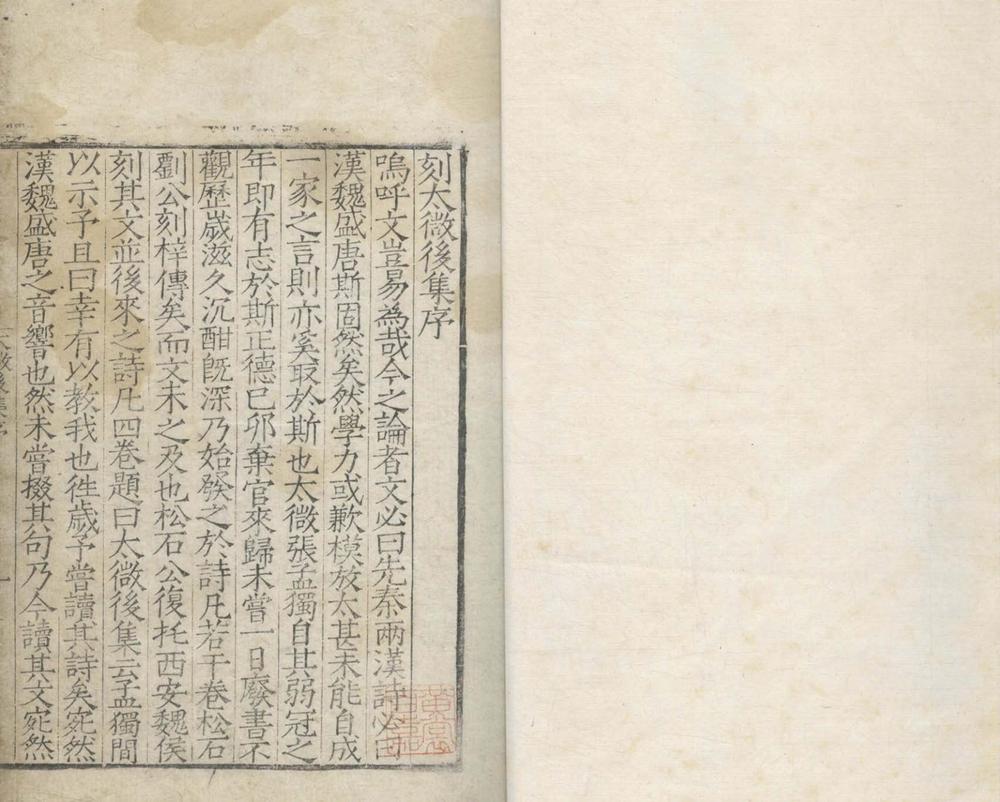 刻太微後集序
嗚呼文豈易為哉今之論者文必曰先秦兩漢詩必曰
漢魏盛唐斯固然矣然學力或歉模放太甚未能自成
一家之言則亦奚取於斯也太微張孟獨自其弱冠之
年即有志於斯正德己卯棄官來歸未嘗一日廢書不
觀歷歲滋久沉酣既深乃始發之於詩凡若干卷松石
劉公刻梓傳矣而文未之及也松石公復托西安魏侯
刻其文並後來之詩凡四卷題曰太微後集云孟獨間
以示予且曰幸有以教我也徃歲予嘗讀其詩矣宛然
漢魏盛唐之音響也然未嘗掇其句乃今讀其文宛然
太微後集序
一